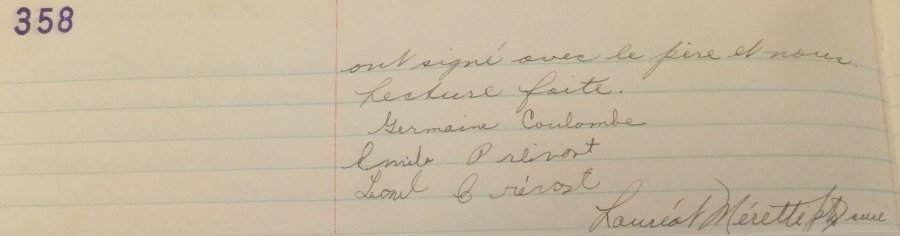 358
ont signé avec le père et nous.
Lecture faite.
Germaine Coulombe
Emile Prévost
Lionel Prévost
Lauréat Mérette ptre